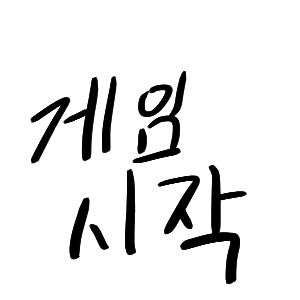 게임
시작